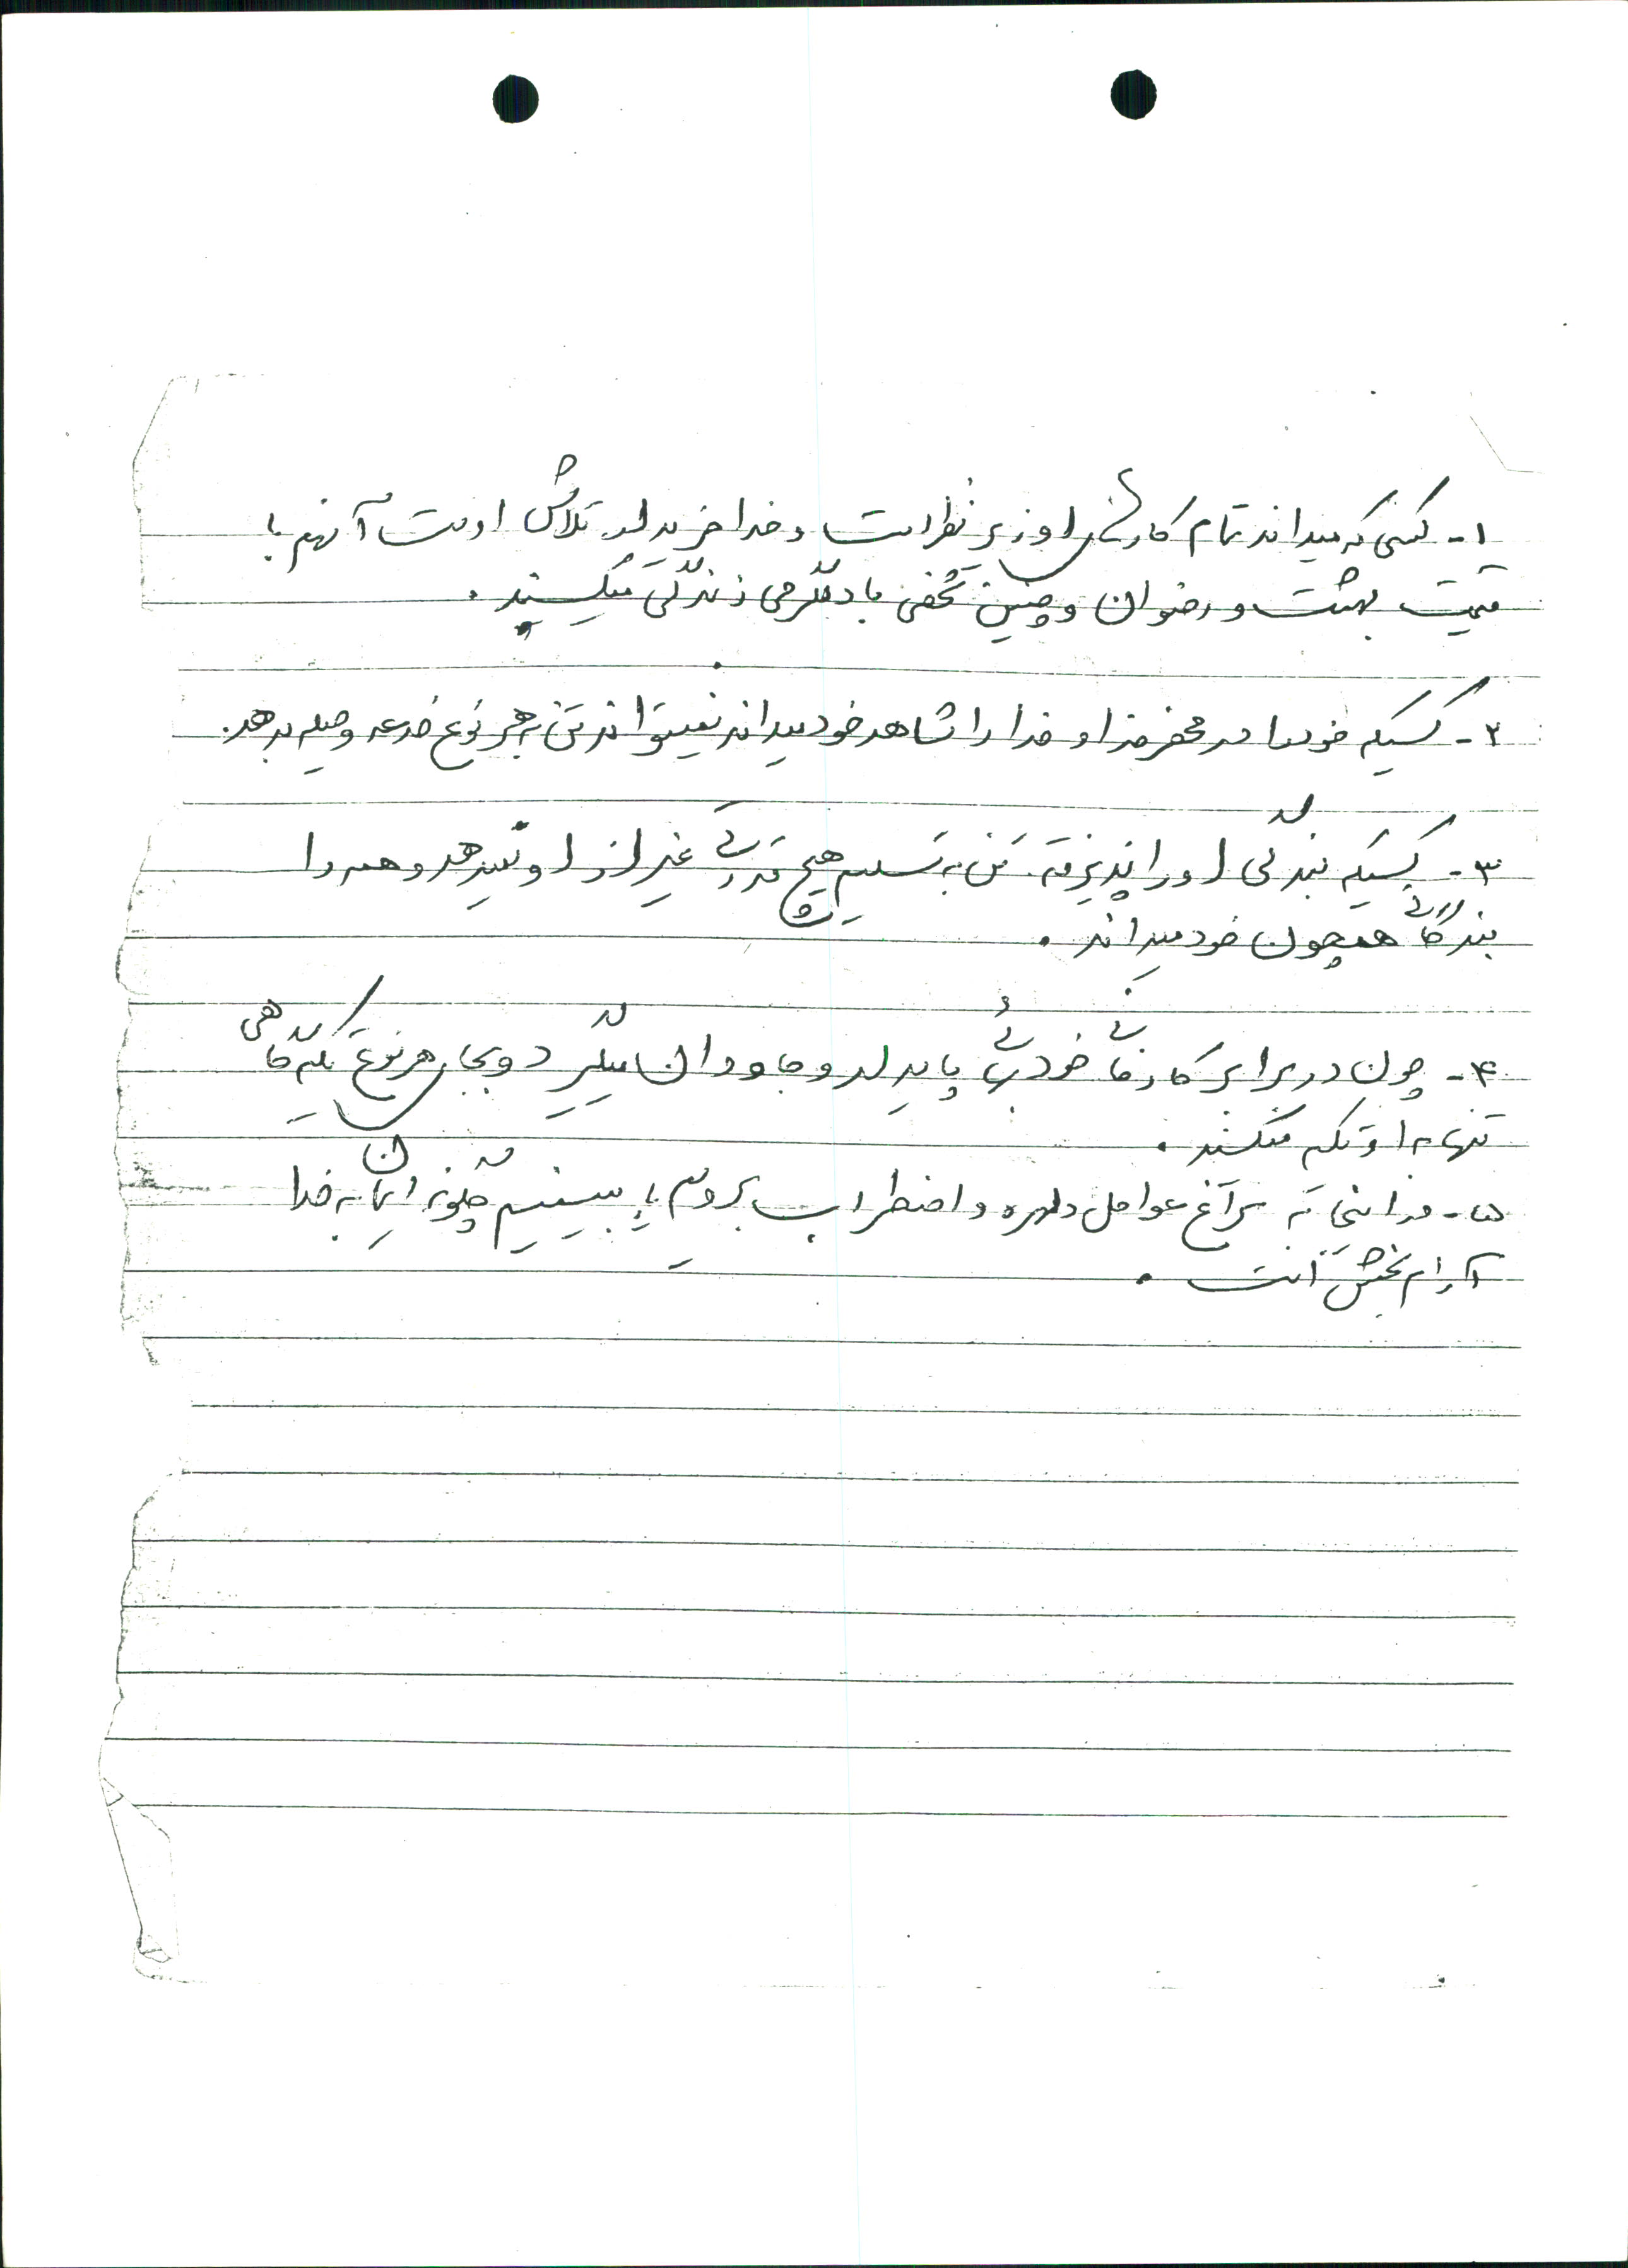 ۱- کسی که میداند تمام کارهای او زیر نظر است و خدا خریدار تلاش اوست آنهم با
قیمت بهشت و رضوان و چنین شخصی با دلگرمی زندگی میکند .
۲- کسیکه خود را در محضر خدا و خدا را شاهد خود میداند نمیتواند تن به هر نوع خدعه و حیله بدهد .
۳- کسیکه بندگی او را پذیرفته تن به تسلیم هیچ قدرتی غیر از او نمیدهد و همه را
بندگانی همچون خود میداند .
۴- چون در برابر کار فانی خود پایدار و جاودان میگیرد و بجای هر نوع تکیه گاهی
تنها به او تکیه میکند .
۵- در اینجا به سراغ عوامل دلهره و اضطراب برویم تا ببینیم چگونه ایمان به خدا
آرام بخش است .